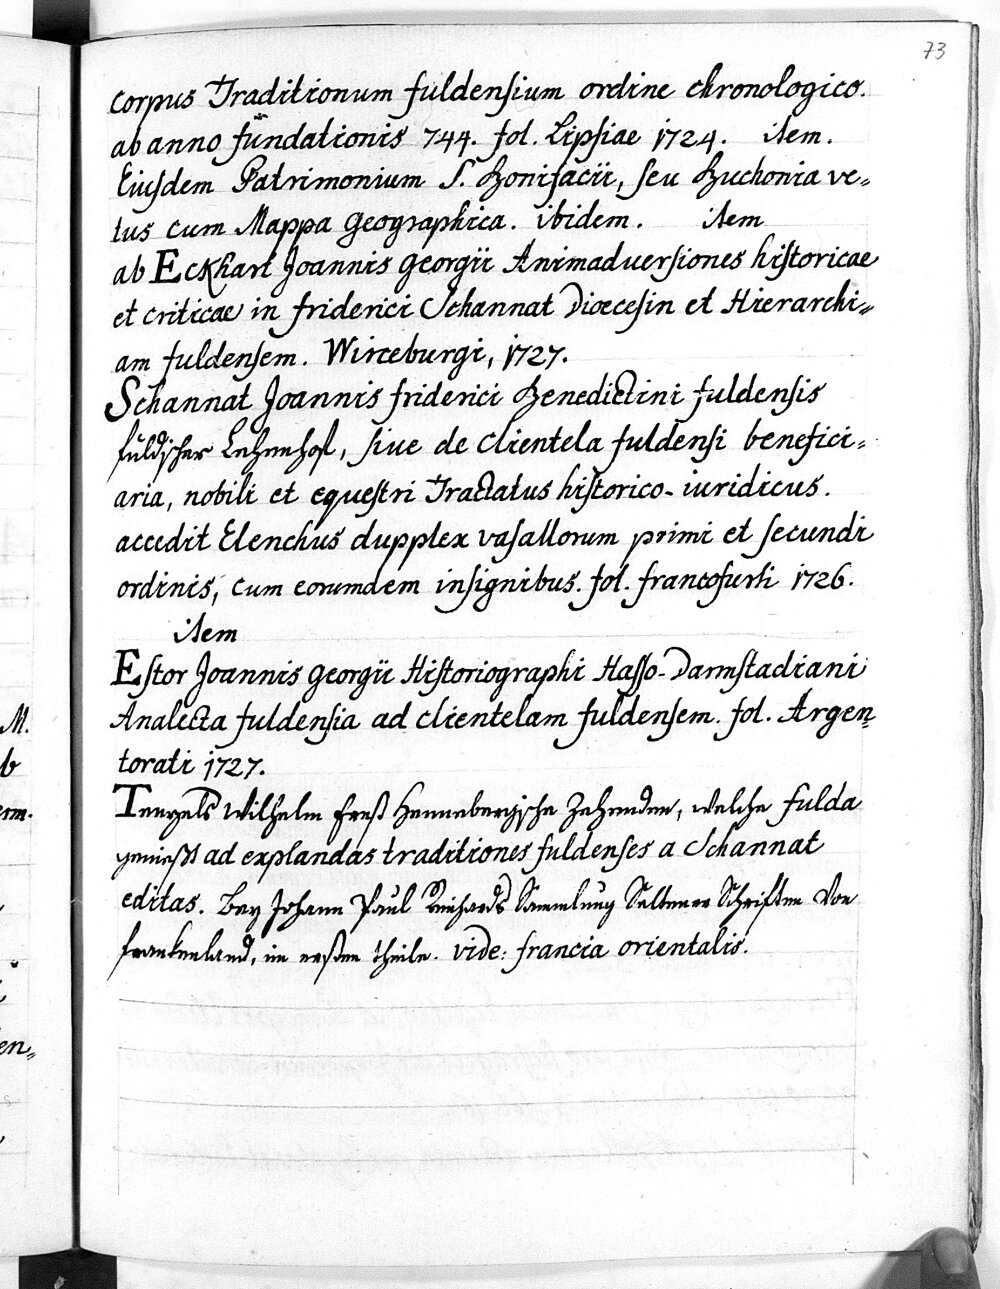 73
Corpus Traditionum fuldensium ordine chronologico.
ab anno fundationis 744. fol. Lipsiae 1724. item.
Eiusdem Patrimonium S. Bonifacii, seu Buchonia ve„
tus cum Mappa Geographica. ibidem. item
ab Eckhart Joannis Georgii Animaduersiones historicae
et criticae in friderici Schannat Dioecesin et Hierarchi„
am fuldensem. Wirceburgi, 1727.
Schannat Joannis friderici Benedictini fuldensis
fuldischer Lehenhof, siue de clientela fuldensi benefici„
aria, nobili et equestri Tractatus historico-iuridicus.
accedit Elenchus dupplex vasallorum primi et secundi
ordinis, cum eorumdem insignibus. fol. francofurti 1726.
item
Estor Joannis Georgii Historiographi Hasso-Darmstadiani
Analecta fuldensia ad clientelam fuldensem. fol. Argen„
torati 1727.
Tenzels Wilhelm Ernst Hennebergische Zehenden, welche fulda
genießt ad explandas traditiones fuldenses a Schannat
editas. Bey Johann Paul Reinhards Sammlung Seltener Schriften Von
frankenland, im ersten theile. vide: francia orientalis.